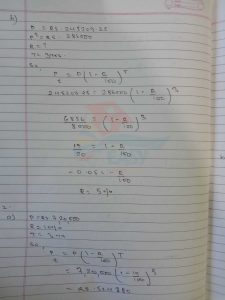 b)
P = RS. 245209.25
P = RS. 286000
R = ?
T = 3 years
So,
P = P (1 - R/100)^T
245209.25 = 286000 (1 - R/100)^3
6859/8000 = (1 - R/100)^3
19/20 = 1 - R/100
- 0.05 = - R/100
R = 5%
2.
a) P = RS. 3,20,000
R = 10%
So,
P = P (1 - R/100)^T
= 3,20,000 (1 - 10/100)